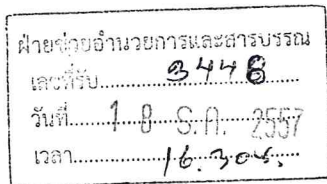 ฝ่ายช่วยอำนวยการและสารบรรณ
เลขที่รับ.......3448.......
วันที่.....18 ธ.ค. 2557
เวลา..........16.30น.